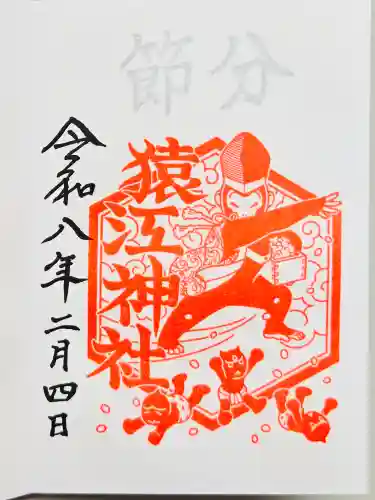 節分
猿江神社
令和八年二月四日